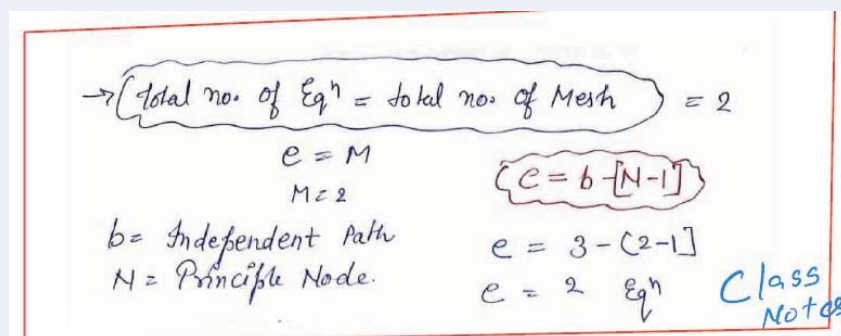 → (Total no. of Eqⁿ = total no. of Mesh) = 2
e = M
M = 2
(e = b-[N-1])
b = Independent Path
N = Principle Node.
e = 3 - (2-1]
e = 2 Eqⁿ
Class
Notes